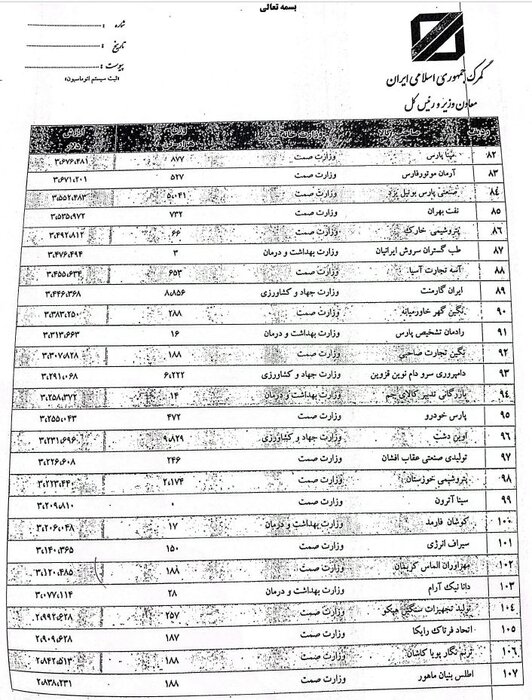 بسمه تعالی
شماره :
تاریخ :
پیوست :
«ثبت سیستم اتوماسیون»
گمرک جمهوری اسلامی ایران
معاون وزیر و رئیس کل
ردیف
۸۲ مپنا پارس وزارت صمت ۸۷۷ ۳،۶۷۶،۴۸۱
۸۳ آرمان موتورفارس وزارت صمت ۵۲۷ ۳،۶۷۱،۲۰۱
۸۴ صنعتی پارس یزد وزارت صمت ۵،۰۴۱ ۳،۵۵۲،۴۸۳
۸۵ نفت بهران وزارت صمت ۷۳۲ ۳،۵۳۵،۹۷۲
۸۶ پتروشیمی خارک وزارت صمت ۶۶ ۳،۴۹۲،۸۱۳
۸۷ طب گستران سروش ایرانیان وزارت بهداشت و درمان ۳ ۳،۴۷۶،۴۹۴
۸۸ آتیه تجارت آسیا وزارت صمت ۶۵۳ ۳،۴۵۵،۶۳۴
۸۹ ایران گارمنت وزارت جهاد و کشاورزی ۸،۸۵۶ ۳،۴۴۶،۳۶۸
۹۰ نگین گهر خاورمیانه وزارت صمت ۲۸۸ ۳،۳۸۳،۲۵۰
۹۱ رادمان تشخیص پارس وزارت بهداشت و درمان ۱۶ ۳،۳۱۳،۶۶۳
۹۲ نگین تجارت صاحبی وزارت صمت ۱۸۸ ۳،۳۰۷،۸۲۸
۹۳ دامپروری سرو دام نوین قزوین وزارت جهاد و کشاورزی ۶،۲۲۲ ۳،۲۹۱،۰۶۸
۹۴ بازرگانی تدبیر کالای جم وزارت بهداشت و درمان ۱۴ ۳،۲۵۸،۳۷۲
۹۵ پارس خودرو وزارت صمت ۴۷۲ ۳،۲۵۵،۰۴۳
۹۶ اوین دشت وزارت جهاد و کشاورزی ۹،۸۲۹ ۳،۲۳۱،۶۹۶
۹۷ تولیدی صنعتی عقاب افشان وزارت صمت ۲۴۶ ۳،۲۲۶،۶۰۸
۹۸ پتروشیمی خوزستان وزارت صمت ۲،۱۷۴ ۳،۲۲۳،۴۴۰
۹۹ سینا آترون وزارت صمت ۰ ۳،۲۰۹،۸۱۰
۱۰۰ کوشان فارمد وزارت بهداشت و درمان ۱۷ ۳،۲۰۶،۰۴۸
۱۰۱ سیراف انرژی وزارت صمت ۱۵۰ ۳،۱۴۰،۳۶۵
۱۰۲ مهرآوران الماس کریمان وزارت صمت ۱۸۸ ۳،۱۲۰،۴۸۵
۱۰۳ داتا نیک آرام وزارت بهداشت و درمان ۲۸ ۳،۰۷۷،۱۱۴
۱۰۴ تولید تجهیزات سنگین هپکو وزارت صمت ۲۵۷ ۲،۹۹۲،۶۲۸
۱۰۵ اتحاد فرتاک رایکا وزارت صمت ۱۸۷ ۲،۹۰۹،۶۲۸
۱۰۶ ترنم نگار پویا کاشان وزارت صمت ۱۸۸ ۲،۸۴۲،۵۱۳
۱۰۷ اطلس بنیان ماهور وزارت صمت ۱۸۸ ۲،۸۳۸،۲۳۱